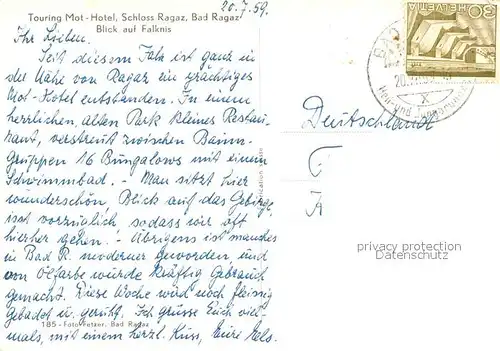 20.7.59.
Touring Mot-Hotel, Schloss Ragaz, Bad Ragaz
Blick auf Falknis
Ihr Lieben.
Seit diesem Jahr ist ganz in
der Nähe von Ragaz ein prächtiges
Mot-Hotel entstanden. In einem
herrlichen, alten Park kleines Restau-
rant, verstreut zwischen Baum-
gruppen 16 Bungalows mit einem
Schwimmbad. - Man sitzt hier
wunderschön, Blick auf das Gebirge,
isst vorzüglich, sodass wir oft
hierher gehen. - Übrigens ist manches
in Bad R. moderner geworden, und
von Ölfarbe wurde kräftig Gebrauch
gemacht. Diese Woche wird noch fleissig
Gebadet u. geruht. Ich grüsse Euch viel-
mals, mit einem herzl. Kuss, Eure Els.
185 - Foto Fetzer, Bad Ragaz
30 HELVETIA
BAD
20. VII.
X
Heil- und
Deutschland
privacy protection
Datenschutz